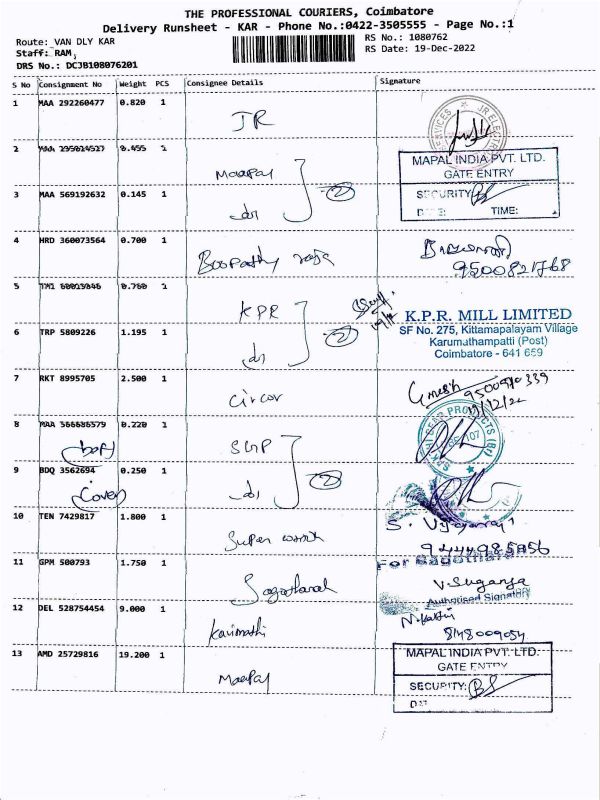 THE PROFESSIONAL COURIERS, Coimbatore
Delivery Runsheet - KAR - Phone No.:0422-3505555 - Page No.:1
Route: VAN DLY KAR
RS No.: 1080762
Staff: RAM,
RS Date: 19-Dec-2022
DRS No.: DCJB108076201
S No Consignment No Weight PCS Consignee Details Signature
1 MAA 292260477 0.820 1 JR
2 0.455 1
MAPAL INDIA PVT. LTD.
GATE ENTRY
SECURITY
TIME:
3 MAA 569192632 0.145 1 do 2
4 HRD 360073564 0.700 1 Boopathy raja
9500821768
5 0.760 1 KPR
K.P.R. MILL LIMITED
SF No. 275, Kittampalayam Village
Karumathampatti (Post)
Coimbatore - 641 659
6 TRP 5809226 1.195 1 do 2
7 RKT 8995705 2.500 1 Circor
19/12/22
8 MAA 566686579 0.220 1 SGP
9 BDQ 3562694 0.250 1 do 2
Cover
10 TEN 7429817 1.800 1 Super
9444985856
11 GPM 500793 1.750 1
For
V. Suganya
Authorised Signatory
12 DEL 528754454 9.000 1 Kavimathi
8148009054
13 AMD 25729816 19.200 1 Maapal
MAPAL INDIA PVT. LTD.
GATE ENTRY
SECURITY: